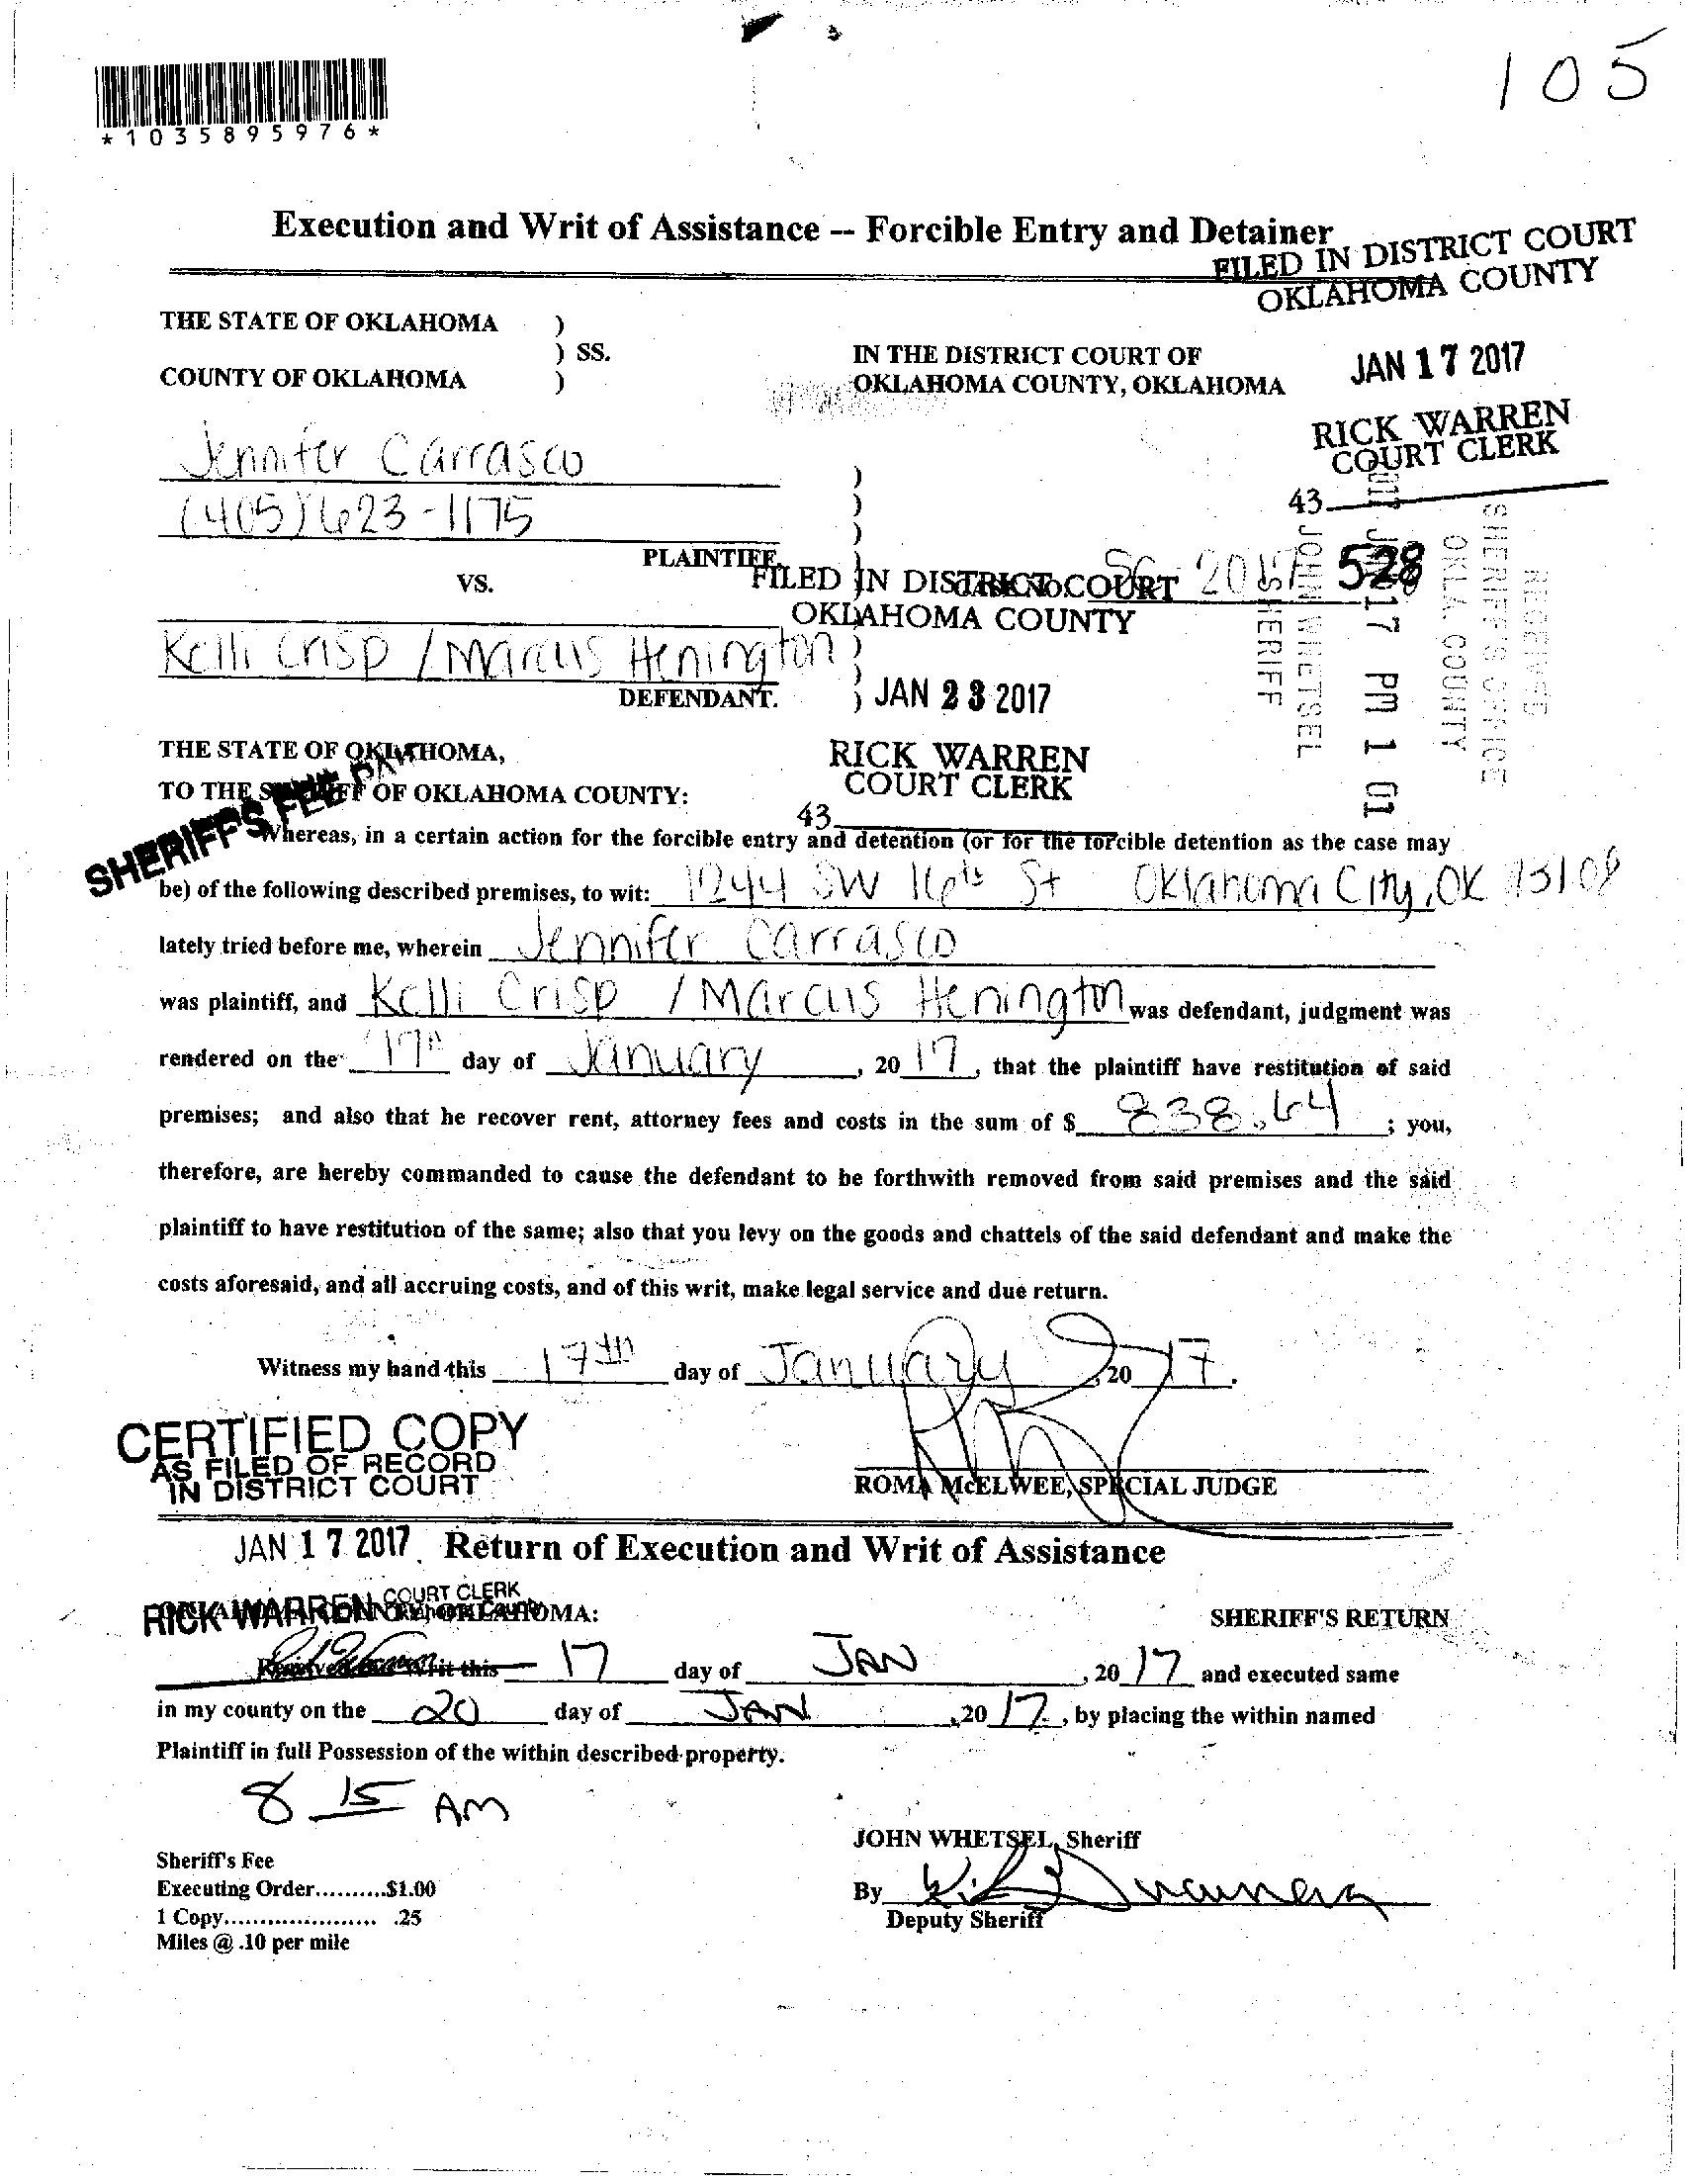 105
*1035895976*
Execution and Writ of Assistance -- Forcible Entry and Detainer
FILED IN DISTRICT COURT
OKLAHOMA COUNTY
JAN 17 2017
RICK WARREN
COURT CLERK
43
THE STATE OF OKLAHOMA )
) SS.
COUNTY OF OKLAHOMA )
IN THE DISTRICT COURT OF
OKLAHOMA COUNTY, OKLAHOMA
Jennifer Carrasco
(405) 623-1175
PLAINTIFF,
VS.
CASE NO. SC 2017 528
Kelli Crisp / Marcus Henington
DEFENDANT.
FILED IN DISTRICT COURT
OKLAHOMA COUNTY
JAN 23 2017
RICK WARREN
COURT CLERK
43
RECEIVED
SHERIFF'S OFFICE
OKLA. COUNTY
2017 JAN 17 PM 1 01
JOHN WHETSEL
SHERIFF
THE STATE OF OKLAHOMA,
TO THE SHERIFF OF OKLAHOMA COUNTY:
SHERIFF'S FEE PAID
Whereas, in a certain action for the forcible entry and detention (or for the forcible detention as the case may
be) of the following described premises, to wit: 1244 SW 16th St Oklahoma City, OK 73108
lately tried before me, wherein Jennifer Carrasco
was plaintiff, and Kelli Crisp / Marcus Henington was defendant, judgment was
rendered on the 17th day of January, 2017, that the plaintiff have restitution of said
premises; and also that he recover rent, attorney fees and costs in the sum of $ 838.64; you,
therefore, are hereby commanded to cause the defendant to be forthwith removed from said premises and the said
plaintiff to have restitution of the same; also that you levy on the goods and chattels of the said defendant and make the
costs aforesaid, and all accruing costs, and of this writ, make legal service and due return.
Witness my hand this 17th day of January, 2017.
ROMA McELWEE, SPECIAL JUDGE
CERTIFIED COPY
AS FILED OF RECORD
IN DISTRICT COURT
JAN 17 2017
Return of Execution and Writ of Assistance
RICK WARREN COURT CLERK
Oklahoma County
OKLAHOMA COUNTY, OKLAHOMA:
SHERIFF'S RETURN
Received this Writ this 17 day of JAN, 2017 and executed same
in my county on the 20 day of JAN, 2017, by placing the within named
Plaintiff in full Possession of the within described property.
8 15 AM
JOHN WHETSEL, Sheriff
By
Deputy Sheriff
Sheriff's Fee
Executing Order..........$1.00
1 Copy..................... .25
Miles @ .10 per mile